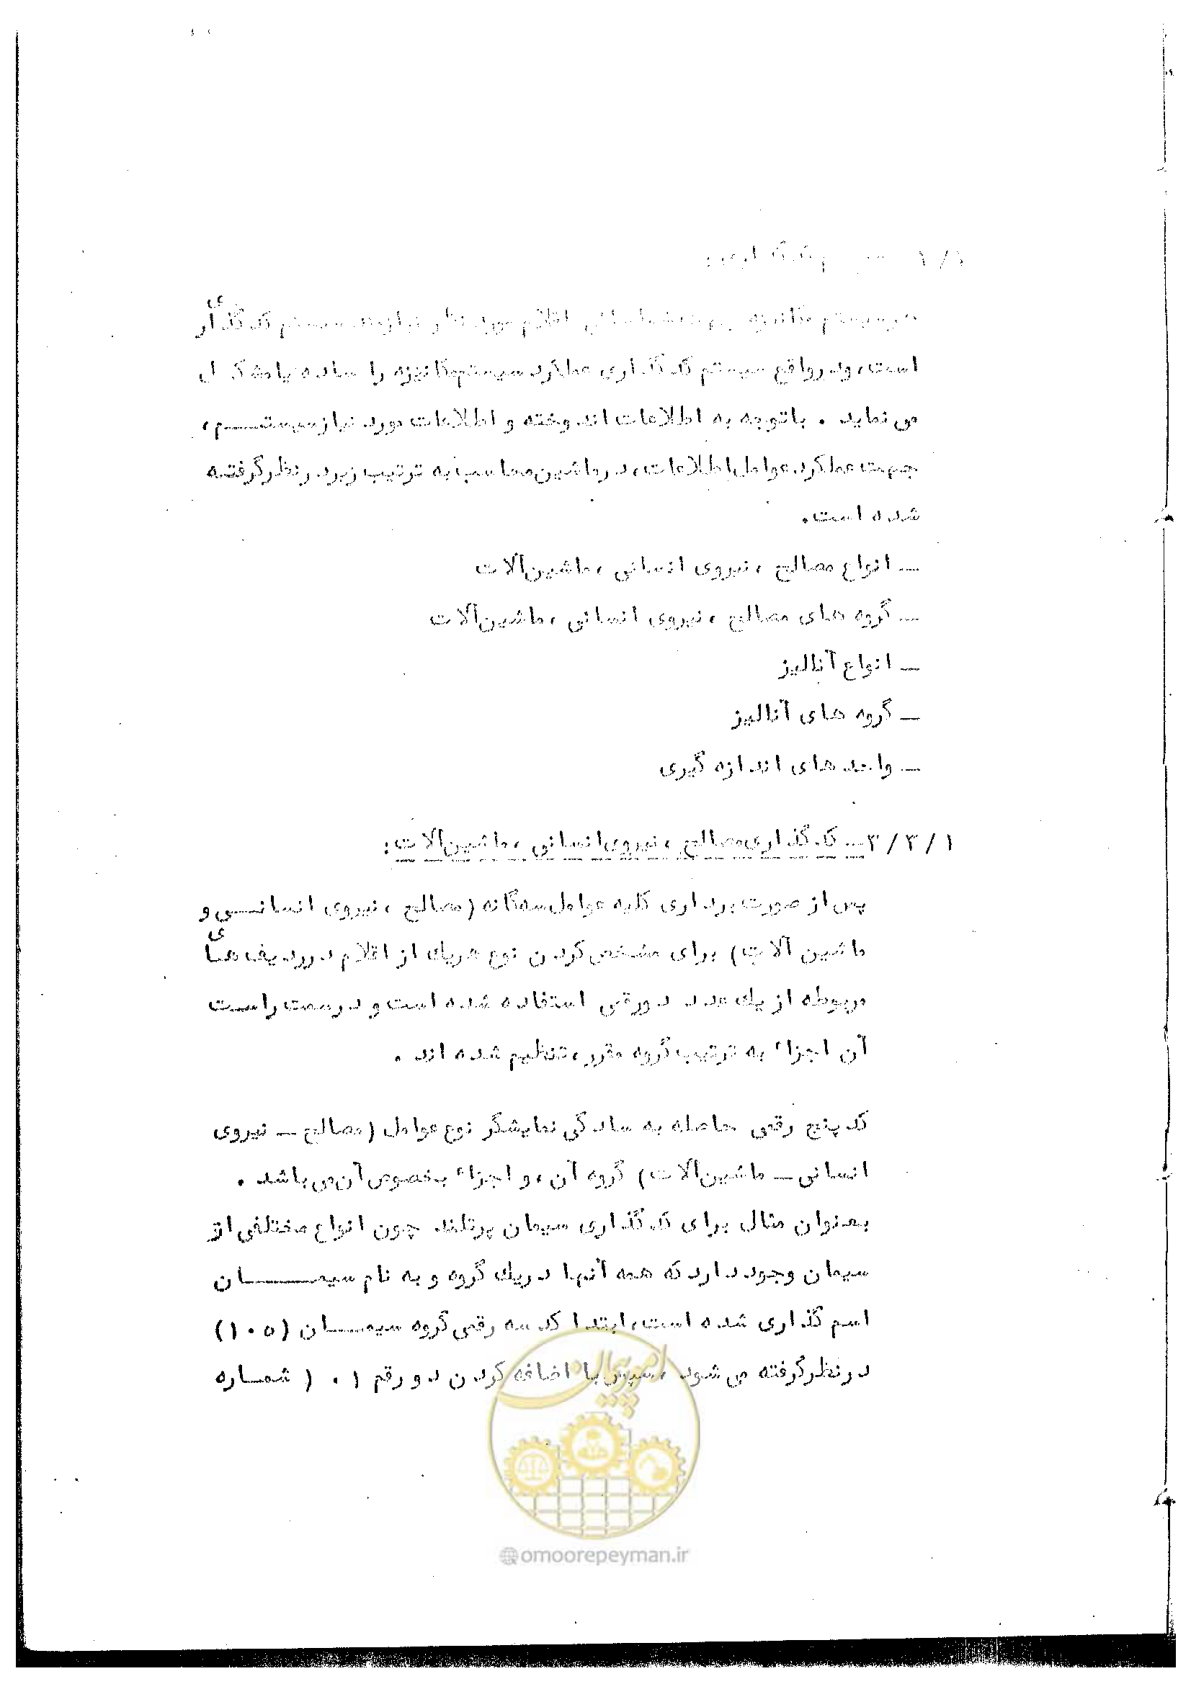 سیستم کدگذاری:
در سیستم مکانیزه جهت شناسائی اقلام مورد نظر نیازمند سیستم کدگذاری
است، ودرواقع سیستم کدگذاری عملکرد سیستم مکانیزه را ساده یا مشکل
می نماید . باتوجه به اطلاعات اندوخته و اطلاعات مورد نیاز سیستم ،
جهت عملکرد عوامل اطلاعات، درماشین محاسب به ترتیب زیر درنظرگرفته
شده است.
ـ انواع مصالح ، نیروی انسانی ، ماشین‌آلات
ـ گروه های مصالح ، نیروی انسانی ، ماشین‌آلات
ـ انواع آنالیز
ـ گروه های آنالیز
ـ واحد های اندازه گیری
۳/۳/۱ـ کدگذاری مصالح ، نیروی انسانی ، ماشین‌آلات :
پس از صورت برداری کلیه عوامل سه‌گانه (مصالح ، نیروی انسانی و
ماشین آلات) برای مشخص کردن نوع هریك از اقلام درردیف های
مربوطه از یك عدد دورقمی استفاده شده است و درسمت راست
آن اجزاء به ترتیب گروه مقرر ، تنظیم شده اند .
کد پنج رقمی حاصله به سادگی نمایشگر نوع عوامل (مصالح ـ نیروی
انسانی ـ ماشین‌آلات) گروه آن ، و اجزاء بخصوص آن می باشد .
بعنوان مثال برای کدگذاری سیمان پرتلند چون انواع مختلفی از
سیمان وجود دارد که همه آنها دریك گروه و به نام سیمان
اسم گذاری شده است، ابتدا کد سه رقمی گروه سیمان (۱۰۵)
درنظرگرفته می شود ، سپس با اضافه کردن دو رقم ۰۱ ( شماره
امور پیمان
@omoorepeyman.ir